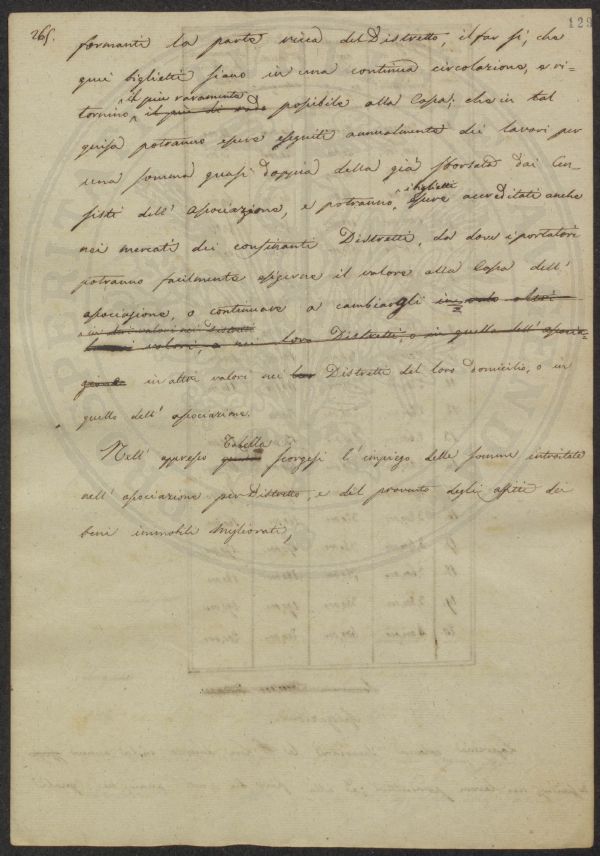 265.
129
formanti la parte ricca del Distretto, il far sì, che
quei biglietti siano in una continua circolazione, e ri-
il più raramente
tornino, il più di rado possibile alla Cassa; che in tal
guisa potranno essere eseguiti annualmente dei lavori per
una somma quasi doppia della già sborsata dai Cen-
sisti dell' associazione, e potranno,
i biglietti
essere accreditati anche
nei mercati dei confinanti Distretti, da dove i portatori
potranno facilmente esigerne il valore alla Cassa dell'
associazione, o continuare a cambiargli in altri
valori, o nei loro Distretti, o in quello dell' associa-
zione in altri valori nei Distretti del loro domicilio, o in
quello dell' associazione.
Tabella
Nell' appresso scorgesi l' impiego delle somme introitate
nell' associazione per Distretto, e del provento degli affitti dei
beni immobili migliorati,